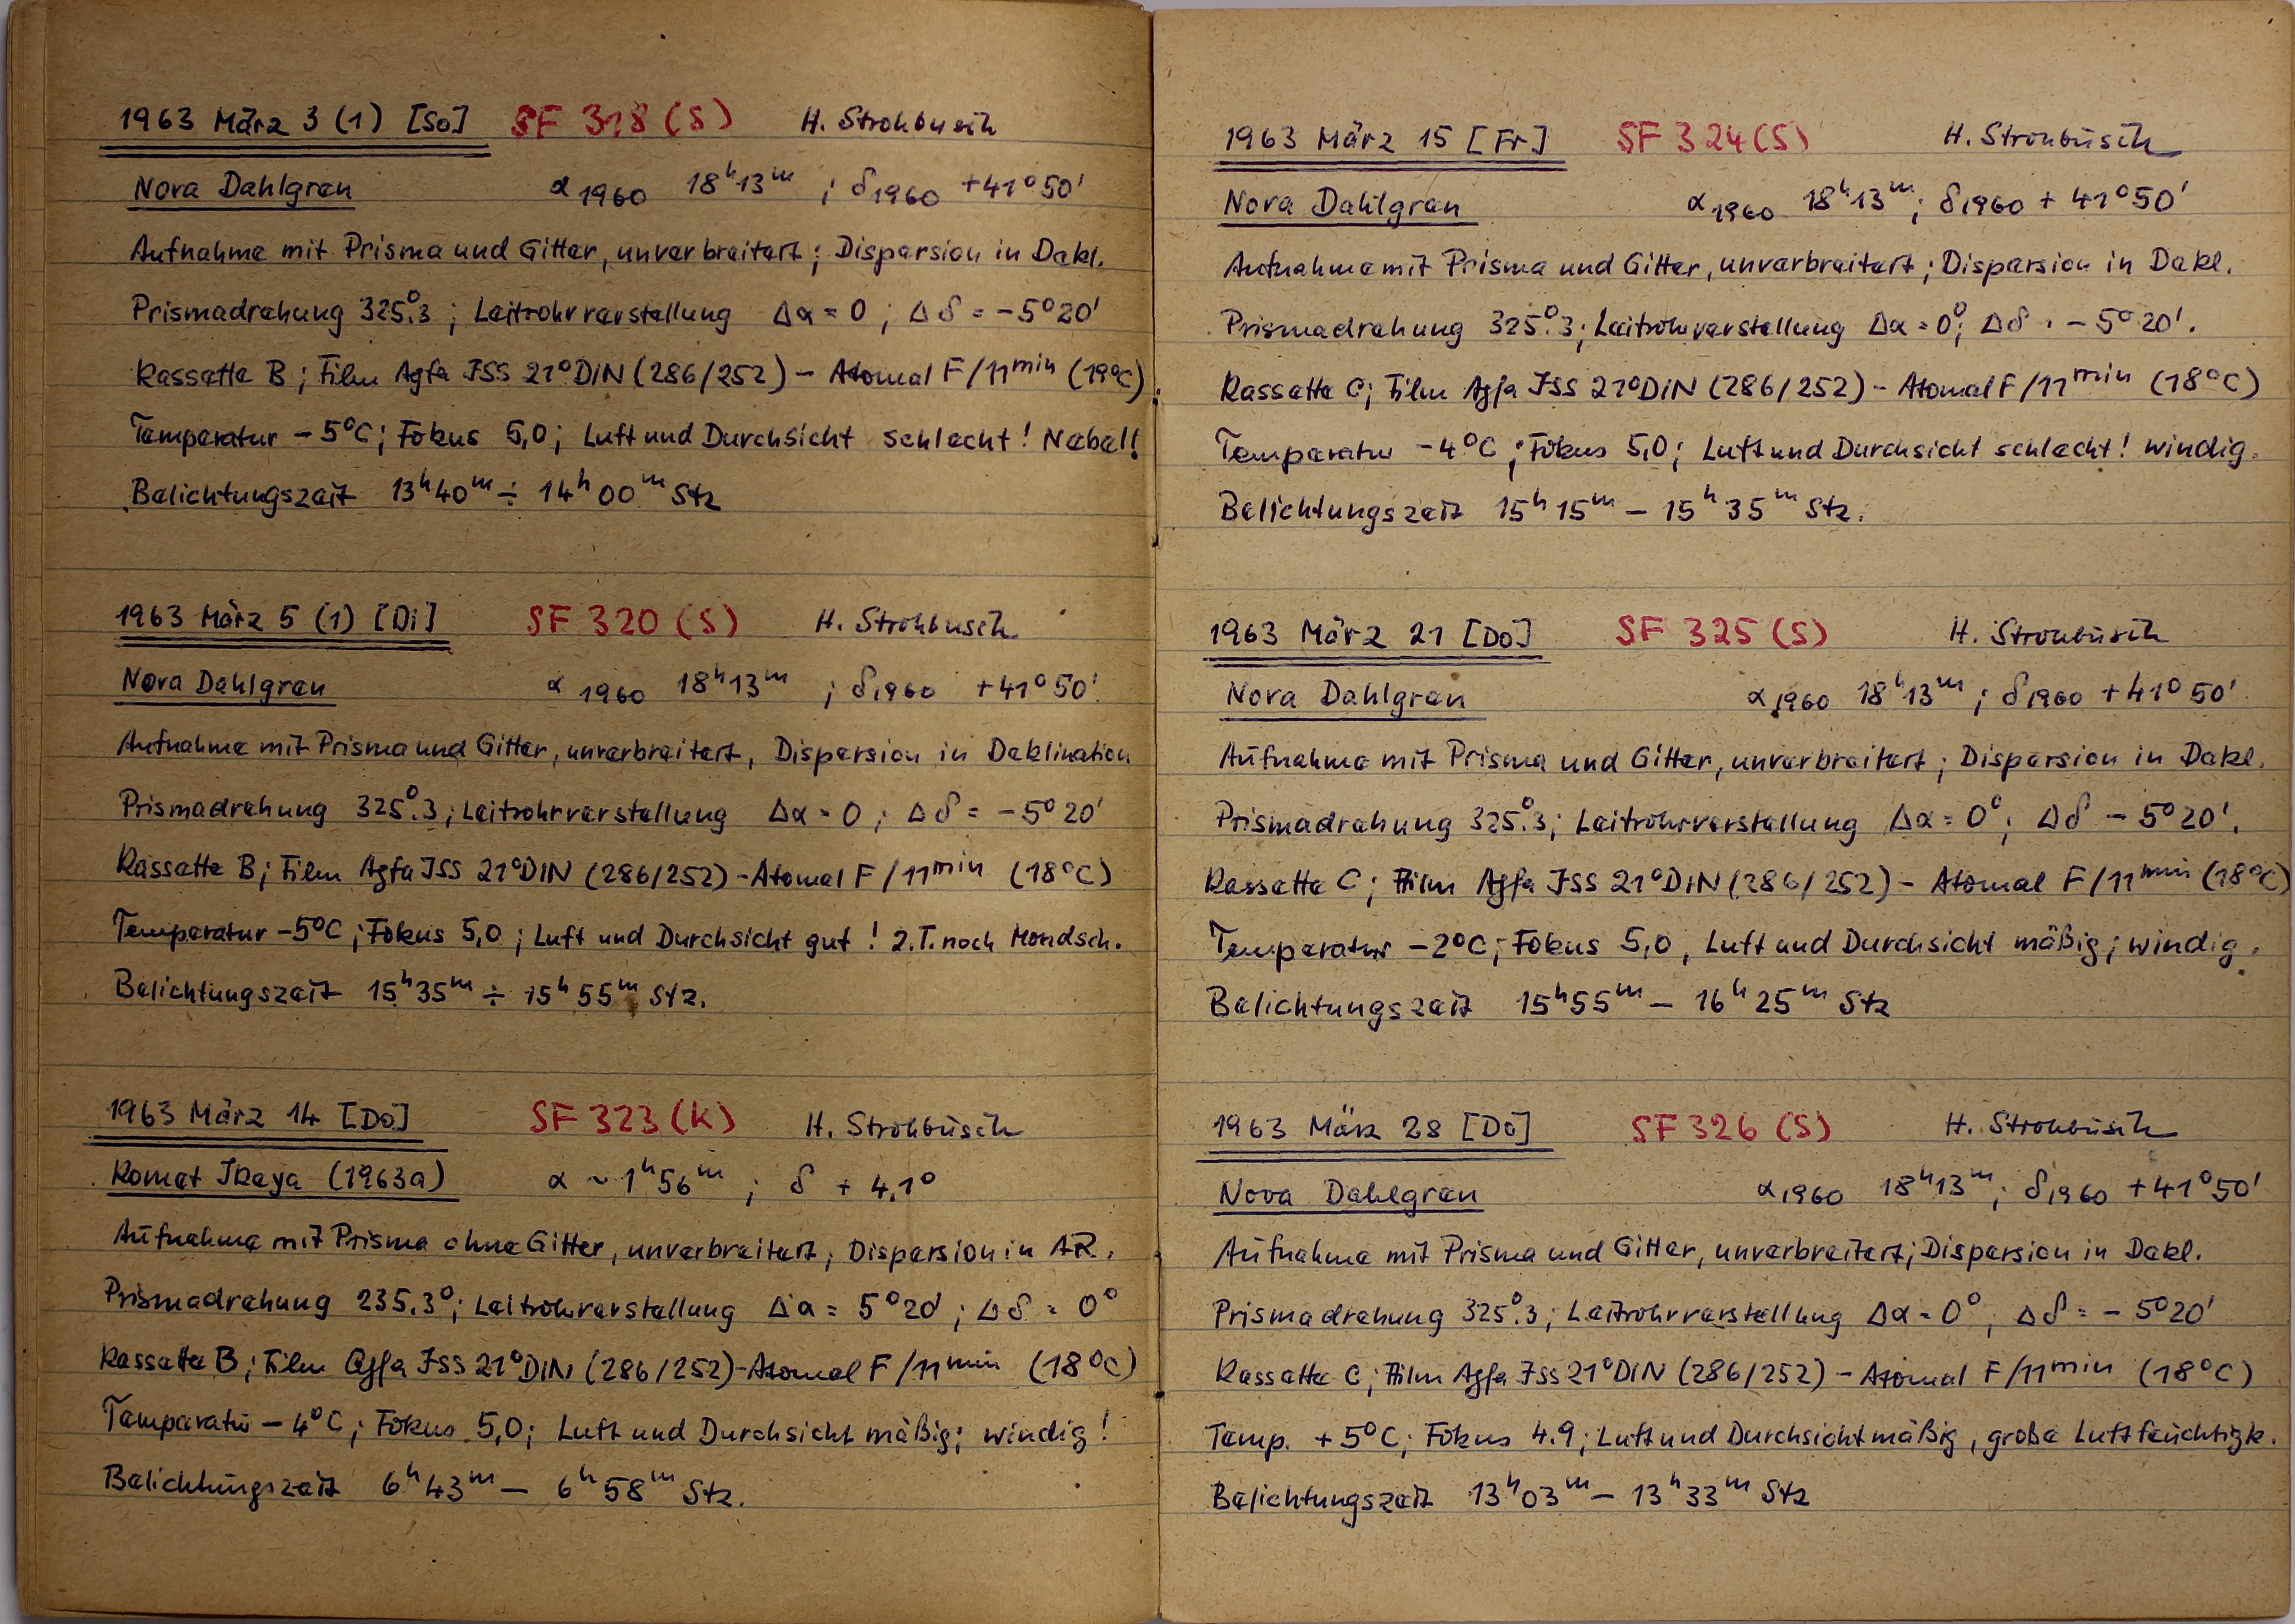 1963 März 3 (1) [So] SF 318 (S) H. Strohbusch
Nova Dahlgren α1960 18h13m ; δ1960 +41°50'
Aufnahme mit Prisma und Gitter, unverbreitert; Dispersion in Dekl.
Prismadrehung 325°.3 ; Leitrohrverstellung Δα = 0 ; Δδ = -5°20'
Kassette B ; Film Agfa ISS 21°DIN (286/252) - Atomal F/11min (19°C)
Temperatur -5°C; Fokus 5,0; Luft und Durchsicht schlecht! Nebel!
Belichtungszeit 13h40m ÷ 14h00m Stz
1963 März 5 (1) [Di] SF 320 (S) H. Strohbusch
Nova Dahlgren α1960 18h13m ; δ1960 +41°50'
Aufnahme mit Prisma und Gitter, unverbreitert, Dispersion in Deklination
Prismadrehung 325°.3; Leitrohrverstellung Δα = 0 ; Δδ = -5°20'
Kassette B; Film Agfa ISS 21°DIN (286/252) - Atomal F/11min (18°C)
Temperatur -5°C ; Fokus 5,0 ; Luft und Durchsicht gut ! z.T. noch Mondsch.
Belichtungszeit 15h35m ÷ 15h55m Stz.
1963 März 14 [Do] SF 323 (K) H. Strohbusch
Komet Ikeya (1963a) α ~ 1h56m ; δ + 4,1°
Aufnahme mit Prisma ohne Gitter, unverbreitert; Dispersion in AR.
Prismadrehung 235.3°; Leitrohrverstellung Δα = 5°20' ; Δδ = 0°
Kassette B ; Film Agfa ISS 21°DIN (286/252) - Atomal F/11min (18°C)
Temperatur -4°C ; Fokus 5,0; Luft und Durchsicht mäßig; windig!
Belichtungszeit 6h43m - 6h58m Stz.
1963 März 15 [Fr] SF 324 (S) H. Strohbusch
Nova Dahlgren α1960 18h13m; δ1960 + 41°50'
Aufnahme mit Prisma und Gitter, unverbreitert; Dispersion in Dekl.
Prismadrehung 325°.3; Leitrohrverstellung Δα = 0°; Δδ = -5°20'.
Kassette C; Film Agfa ISS 21°DIN (286/252) - Atomal F/11min (18°C)
Temperatur -4°C ; Fokus 5,0; Luft und Durchsicht schlecht! windig.
Belichtungszeit 15h15m - 15h35m Stz.
1963 März 21 [Do] SF 325 (S) H. Strohbusch
Nova Dahlgren α1960 18h13m ; δ1960 +41°50'
Aufnahme mit Prisma und Gitter, unverbreitert; Dispersion in Dekl.
Prismadrehung 325°.3; Leitrohrverstellung Δα = 0°; Δδ - 5°20'.
Kassette C; Film Agfa ISS 21°DIN (286/252) - Atomal F/11min (18°C)
Temperatur -2°C; Fokus 5,0, Luft und Durchsicht mäßig; windig.
Belichtungszeit 15h55m - 16h25m Stz
1963 März 28 [Do] SF 326 (S) H. Strohbusch
Nova Dahlgren α1960 18h13m; δ1960 +41°50'
Aufnahme mit Prisma und Gitter, unverbreitert; Dispersion in Dekl.
Prismadrehung 325°.3; Leitrohrverstellung Δα = 0°, Δδ = -5°20'
Kassette C; Film Agfa ISS 21°DIN (286/252) - Atomal F/11min (18°C)
Temp. +5°C; Fokus 4.9; Luft und Durchsicht mäßig, große Luftfeuchtigk.
Belichtungszeit 13h03m - 13h33m Stz